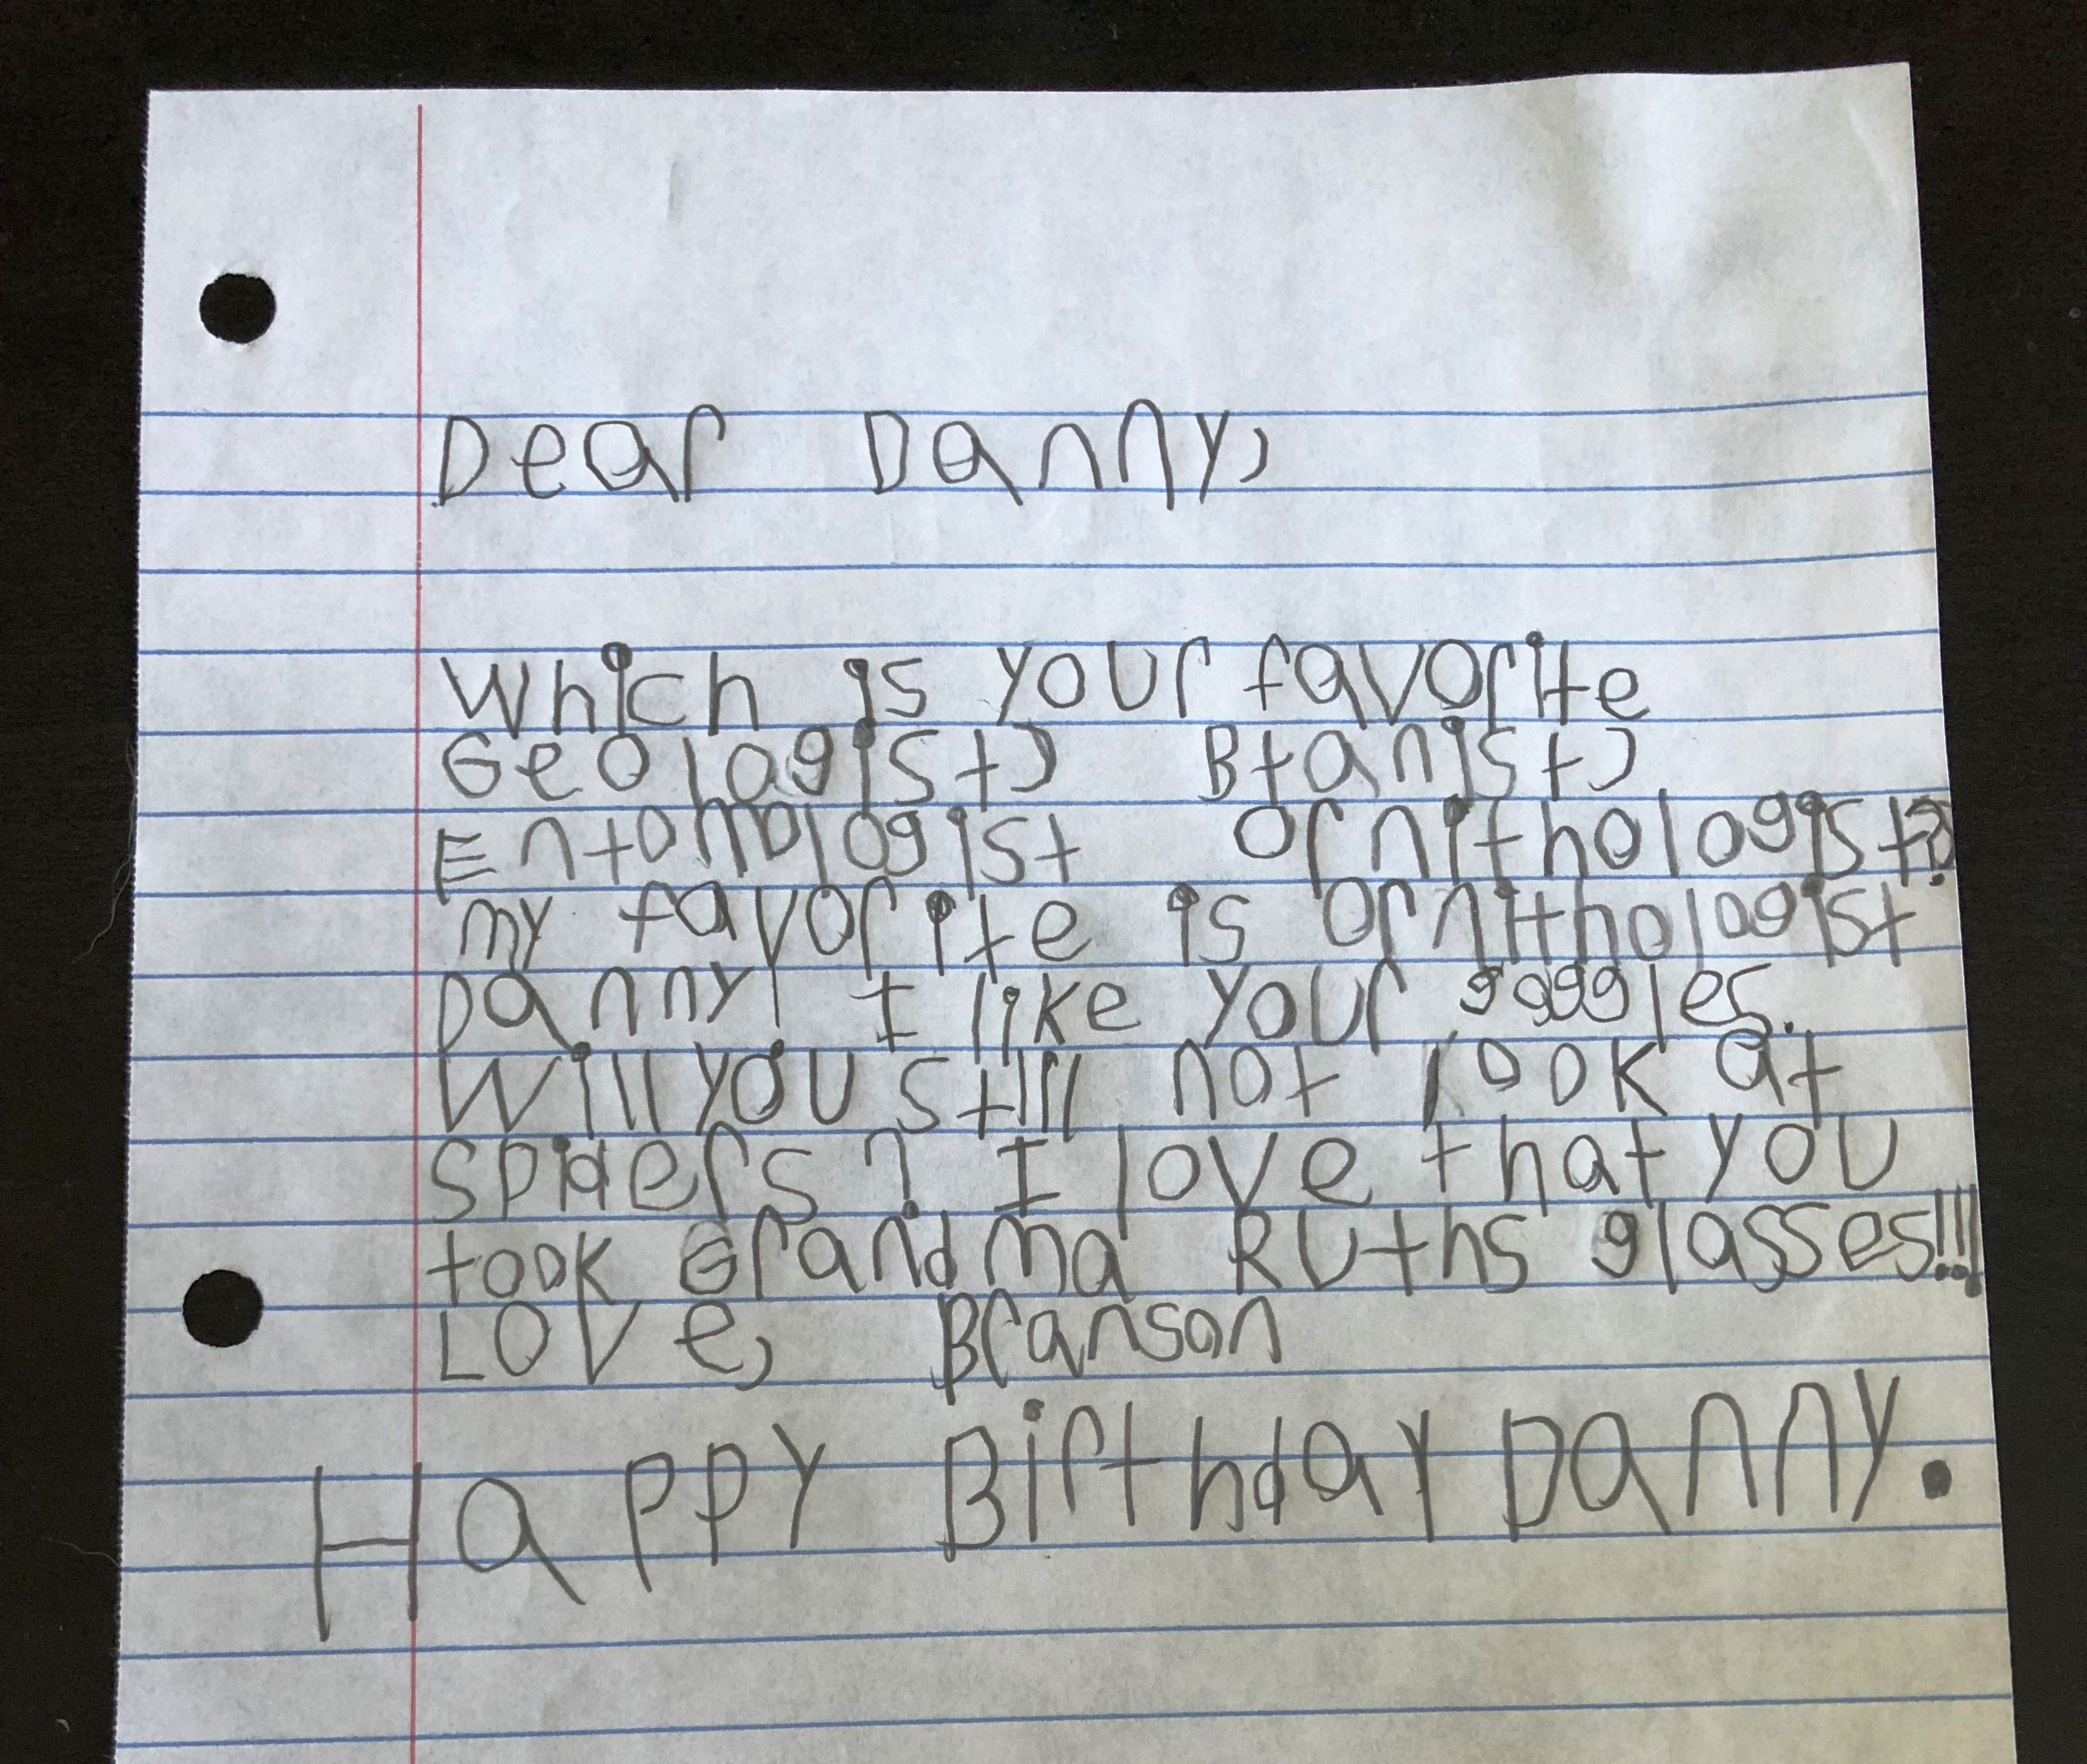 Dear Danny,
Which is your favorite
Geologist, Btanist,
Entomologist Ornithologist?
my favorite is Ornithologist
Danny! I like your goggles.
Will you still not look at
spiders? I love that you
took Grandma Ruths glasses!!!
Love, Branson
Happy Birthday Danny.